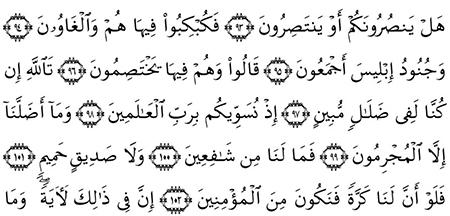 هَلْ يَنصُرُونَكُمْ أَوْ يَنتَصِرُونَ ﴿٩٣﴾ فَكُبْكِبُوا۟ فِيهَا هُمْ وَٱلْغَاوُۥنَ ﴿٩٤﴾
وَجُنُودُ إِبْلِيسَ أَجْمَعُونَ ﴿٩٥﴾ قَالُوا۟ وَهُمْ فِيهَا يَخْتَصِمُونَ ﴿٩٦﴾ تَٱللَّهِ إِن
كُنَّا لَفِى ضَلَـٰلٍ مُّبِينٍ ﴿٩٧﴾ إِذْ نُسَوِّيكُم بِرَبِّ ٱلْعَـٰلَمِينَ ﴿٩٨﴾ وَمَآ أَضَلَّنَآ
إِلَّا ٱلْمُجْرِمُونَ ﴿٩٩﴾ فَمَا لَنَا مِن شَـٰفِعِينَ ﴿١٠٠﴾ وَلَا صَدِيقٍ حَمِيمٍ ﴿١٠١﴾
فَلَوْ أَنَّ لَنَا كَرَّةً فَنَكُونَ مِنَ ٱلْمُؤْمِنِينَ ﴿١٠٢﴾ إِنَّ فِى ذَٰلِكَ لَـَٔايَةً ۖ وَمَا